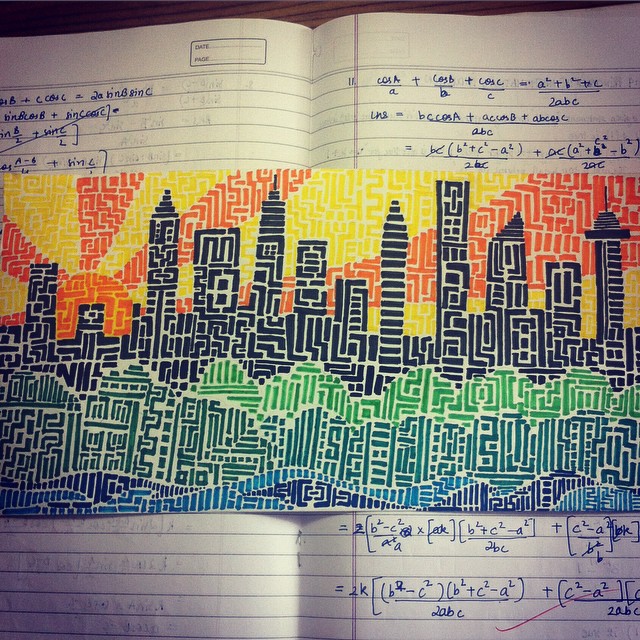 DATE
PAGE
cosB + c cosC = 2a sinB sinC
sinBcosB + sinCcosC]
11. cosA/a + cosB/b + cosC/c = a² + b² + c/2abc
LHS = bc cosA + ac cosB + ab cosC/abc
= bc(b² + c² - a²)/2bc + ac(a² + c² - b²)/2ac
= 2[b² - c²/a × [ak][b² + c² - a²]/2bc + [c² - a²/b
= 2k[(b² - c²)(b² + c² - a²)/2abc + [c² - a²][c/2abc